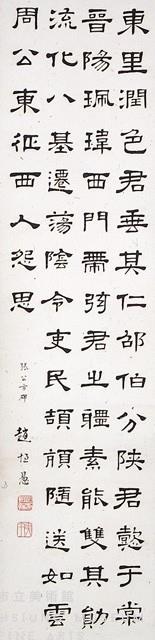 東里潤色君垂其仁邵伯分陝君懿于棠
晉陽珮瑋西門帶弦君之軆素能雙其勛
流化八基遷蕩陰令吏民頡頏隨送如雲
周公東征西人怨思
張公方碑
趙恒惖
市立美術館
HSIUNG MUSEUM
FINE ARTS